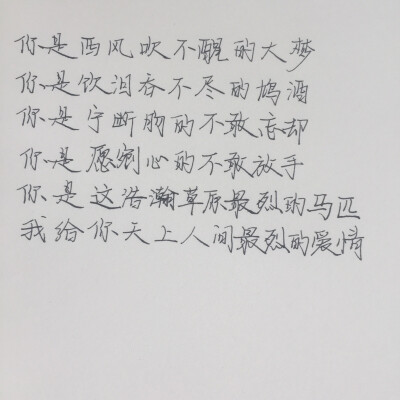 你是西风吹不醒的大梦
你是饮泪吞不尽的鸩酒
你是宁断肠的不敢忘却
你是愿剜心的不敢放手
你是这浩瀚草原最烈的马匹
我给你天上人间最烈的爱情